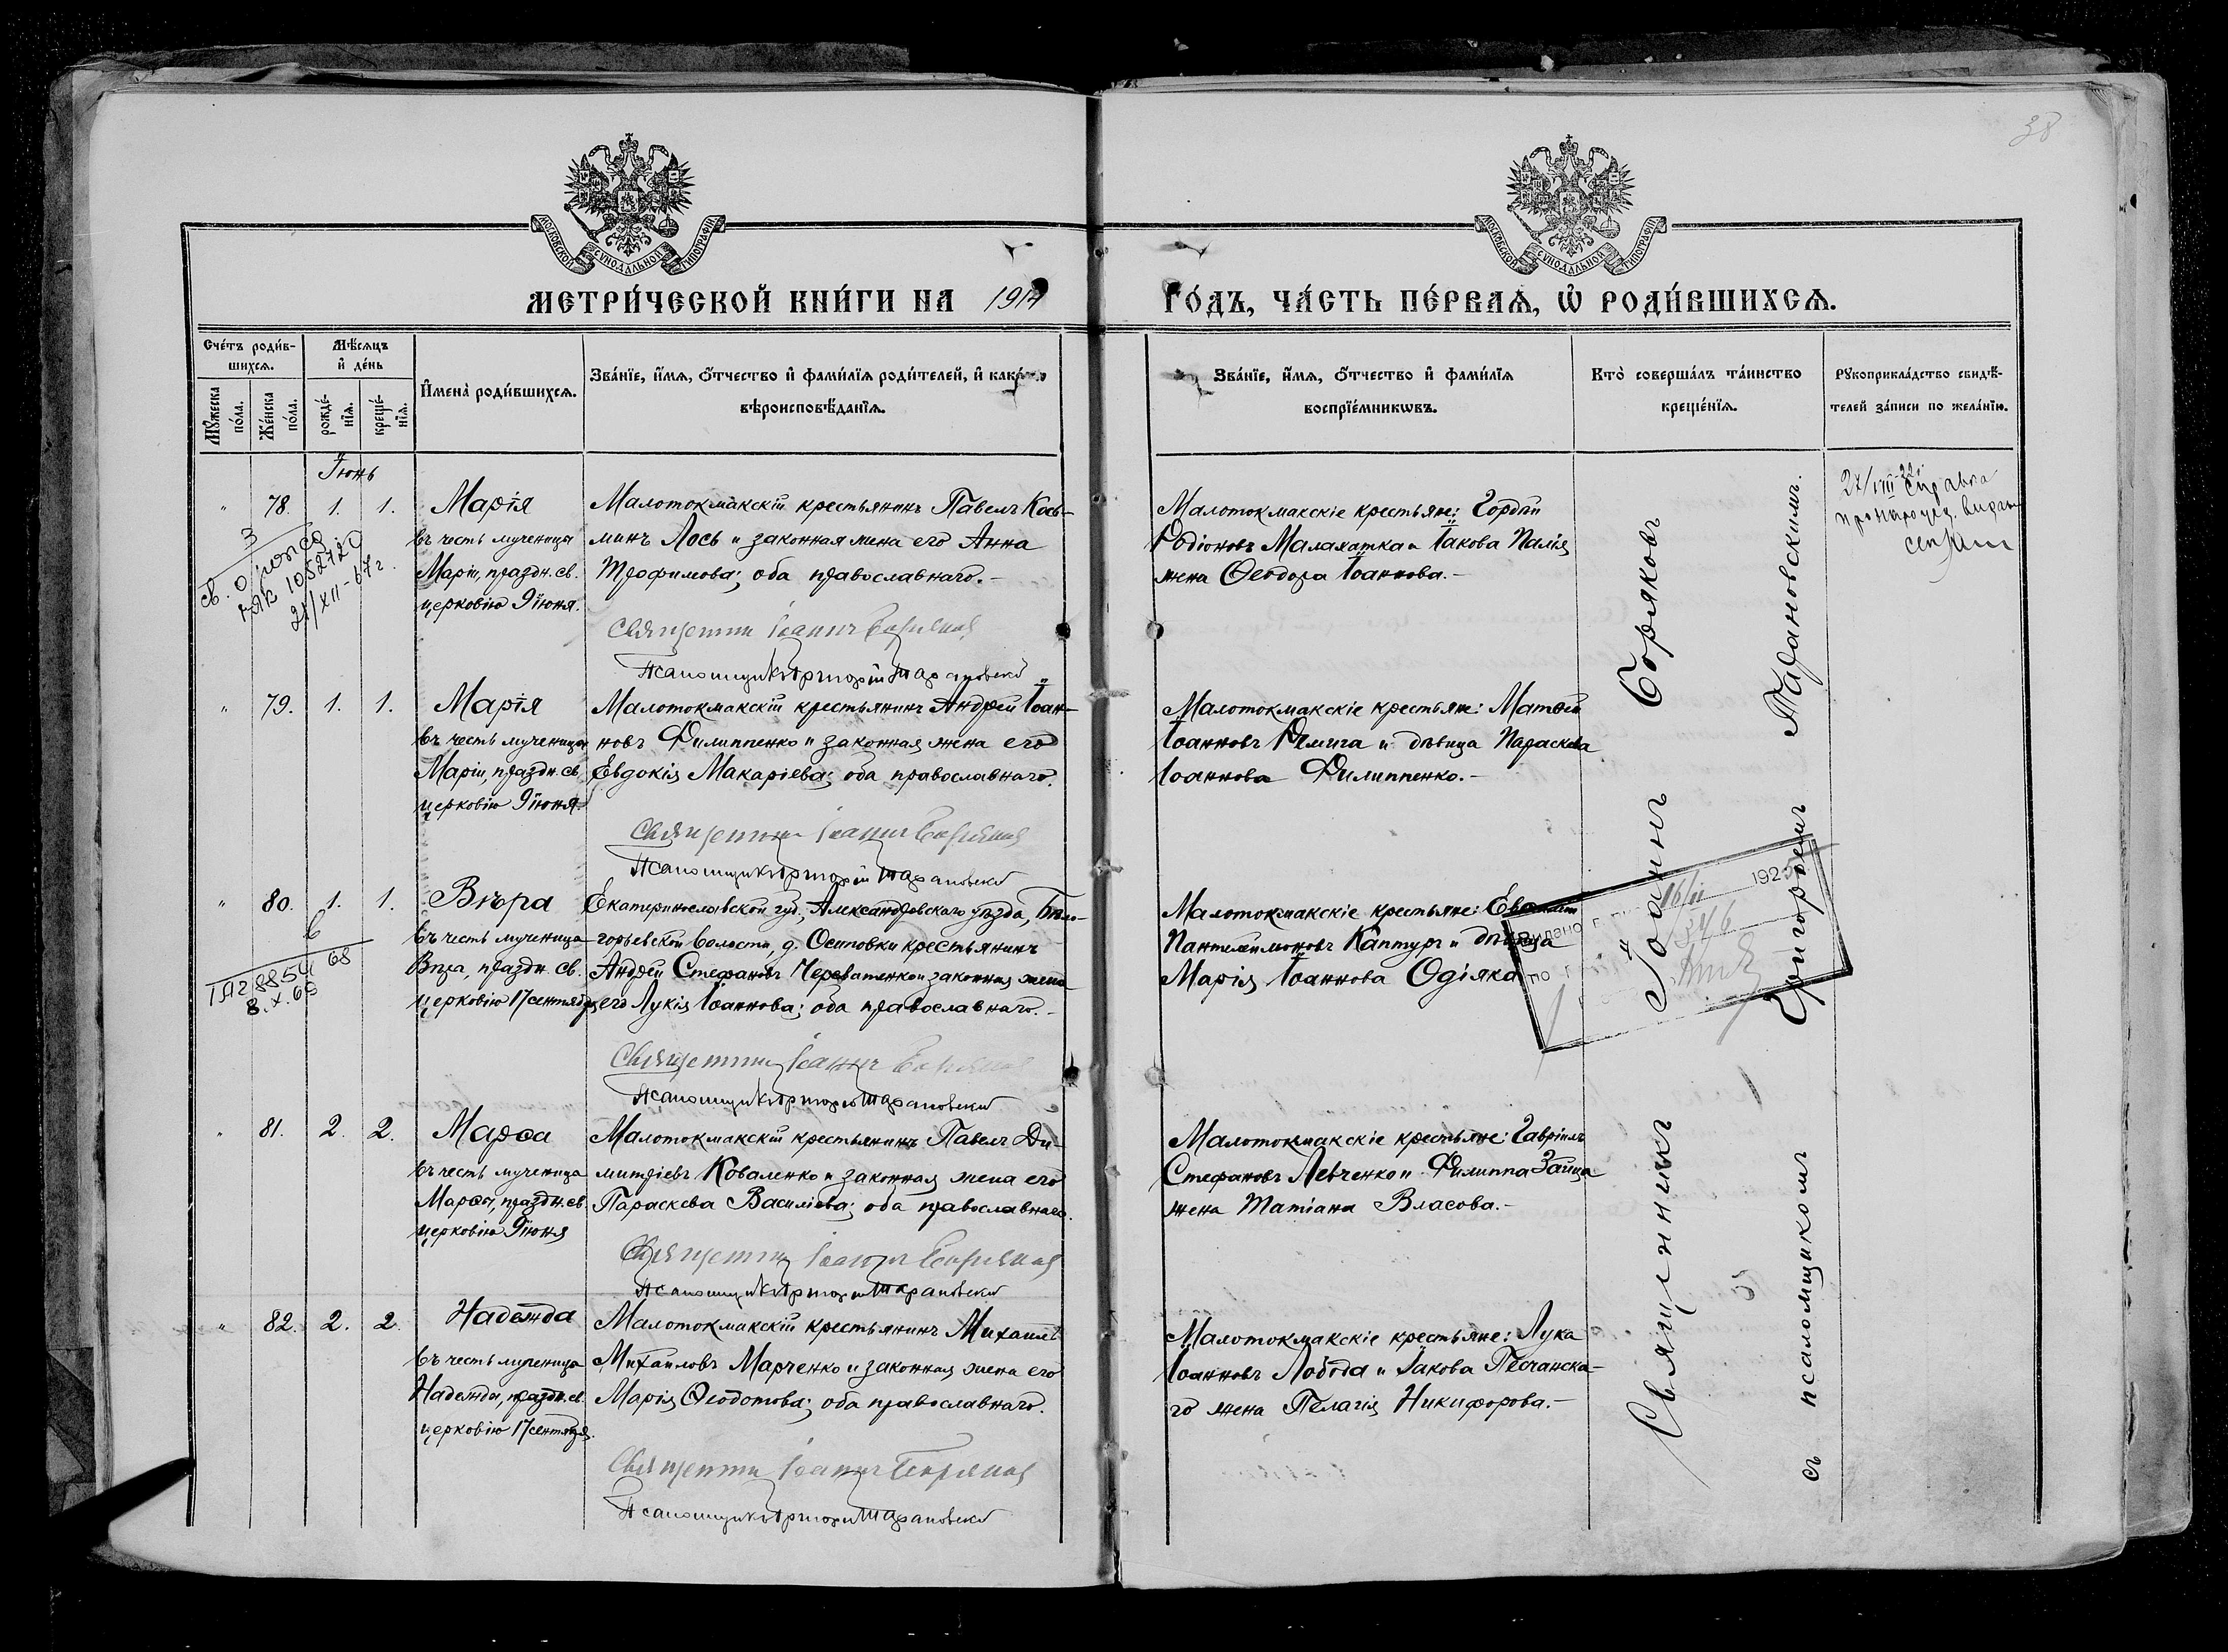 38
МОСКОВСКОЙ СѴНОДАЛЬНОЙ ТИПОГРАФІИ
МОСКОВСКОЙ СѴНОДАЛЬНОЙ ТИПОГРАФІИ
МЕТРИ́ЧЕСКОЙ КНИ́ГИ НА 1914 ГО́ДЪ, ЧА́СТЬ ПЕ́РВАѦ, Ѡ҆ РОДИ́ВШИХСѦ.
Сче́тъ роди́в-
шихсѧ.
Мѣ́сѧцъ
и҆ де́нь
Мꙋ́жеска
по́ла.
Же́нска
по́ла.
рожде́-
нїѧ.
креще́-
нїѧ.
И҆мена̀ роди́вшихсѧ.
Зва́нїе, и҆́мѧ, ѻ҆́тчество и҆ фами́лїѧ роди́телей, и҆ како́гѡ
вѣроисповѣ́данїѧ.
Зва́нїе, и҆́мѧ, ѻ҆́тчество и҆ фами́лїѧ
воспрїе́мникѡвъ.
Кто̀ соверша́лъ та́инство
креще́нїѧ.
Рꙋкоприкла́дство свидѣ́-
телей за́писи по жела́нїю.
Іюнь
" 78. 1. 1. Марія
въ честь мученицы
Маріи, праздн. св.
церковію 9 іюня.
Малотокмакскій крестьянинъ Павелъ Кось-
минъ Лось и законная жена его Анна
Трофимова; оба православнаго.-
Священникъ Іоаннъ Боряковъ
Псаломщикъ Григорій Тарановскій
Малотокмакскіе крестьяне: Гордій
Родіоновъ Малахатка и Іакова Палія
жена Ѳеодора Іоаннова.-
27/VIII-22 справка
105272
21/XII-67г.
" 79. 1. 1. Марія
въ честь мученицы
Маріи, праздн. св.
церковію 9 іюня
Малотокмакскій крестьянинъ Андрей Іоан-
новъ Филиппенко и законная жена его
Евдокія Макаріева; оба православнаго.
Священникъ Іоаннъ Боряковъ
Псаломщикъ Григорій Тарановскій
Малотокмакскіе крестьяне: Матѳей
Іоанновъ и дѣвица Параскева
Іоаннова Филиппенко.-
" 80. 1. 1. Вѣра
въ честь мученицы
Вѣра, праздн. св.
церковію 17 сентября
Екатеринославской губ., Александровскаго уѣзда, Бѣло-
горьевской волости, д. Осиповки крестьянинъ
Андрей Стефановъ Череватенко и законная жена
его Лукія Іоаннова; оба православнаго.-
Священникъ Іоаннъ Боряковъ
Псаломщикъ Григорій Тарановскій
Малотокмакскіе крестьяне:
Пантелеимоновъ Каптуръ и дѣвица
Марія Іоаннова Одіяка
68
8.X.68
16/II 1925
" 81. 2. 2. Марѳа
въ честь мученицы
Марѳы, праздн. св.
церковію 9 іюня
Малотокмакскій крестьянинъ Павелъ Ди-
митріевъ Коваленко и законная жена его
Параскева Василіева; оба православнаго.
Священникъ Іоаннъ Боряковъ
Псаломщикъ Григорій Тарановскій
Малотокмакскіе крестьяне: Гавріилъ
Стефановъ Левченко и Филиппа Зайца
жена Татіана Власова.-
" 82. 2. 2. Надежда
въ честь мученицы
Надежды, праздн. св.
церковію 17 сентября.
Малотокмакскій крестьянинъ Михаилъ
Михаиловъ Марченко и законная жена его
Марія Ѳеодотова; оба православнаго.
Священникъ Іоаннъ Боряковъ
Псаломщикъ Григорій Тарановскій
Малотокмакскіе крестьяне: Лука
Іоанновъ Лобода и Іакова Песчанска-
го жена Пелагія Никифорова.-
Священникъ Іоаннъ Боряковъ
съ псаломщикомъ Григоріемъ Тарановскимъ.